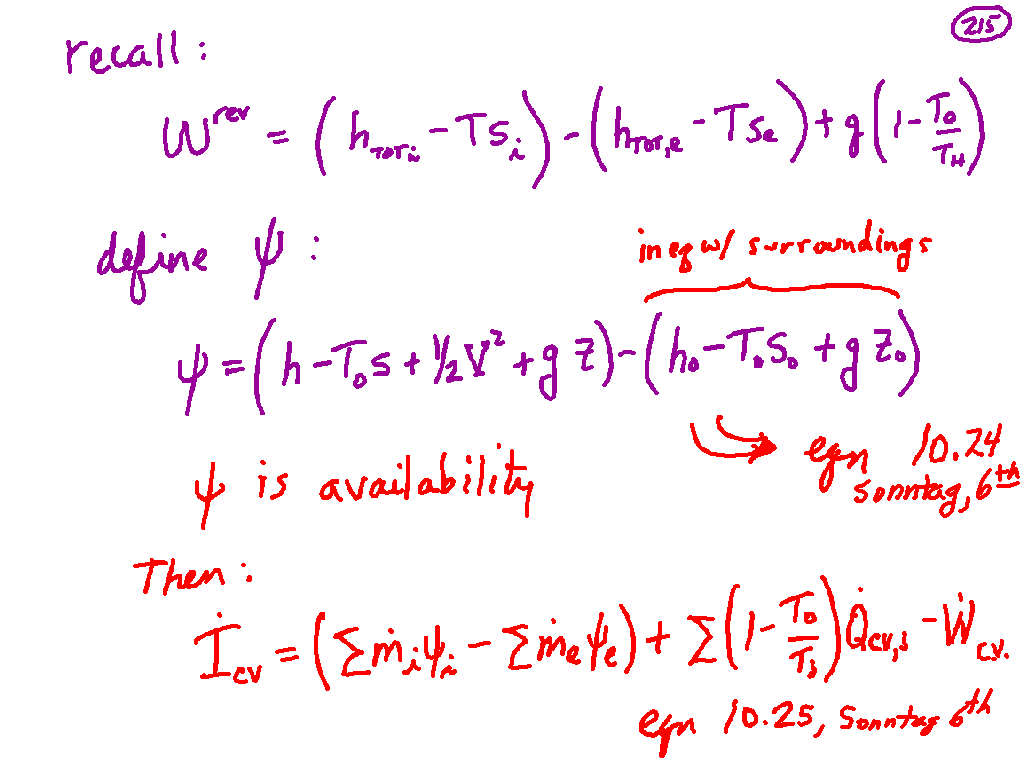 215
recall :
W^rev = (h_TOT,i - Ts_i) - (h_TOT,e - Ts_e) + q(1 - T_0/T_H)
define ψ :
in eq w/ surroundings
ψ = (h - T_0 s + 1/2 V² + g z) - (h_0 - T_0 S_0 + g z_0)
eqn 10.24
ψ is availability
Sonntag, 6th
Then :
İ_cv = (Σ ṁ_i ψ_i - Σ ṁ_e ψ_e) + Σ(1 - T_0/T_j) Q̇_cv,j - Ẇ_c.v.
eqn 10.25, Sonntag 6th